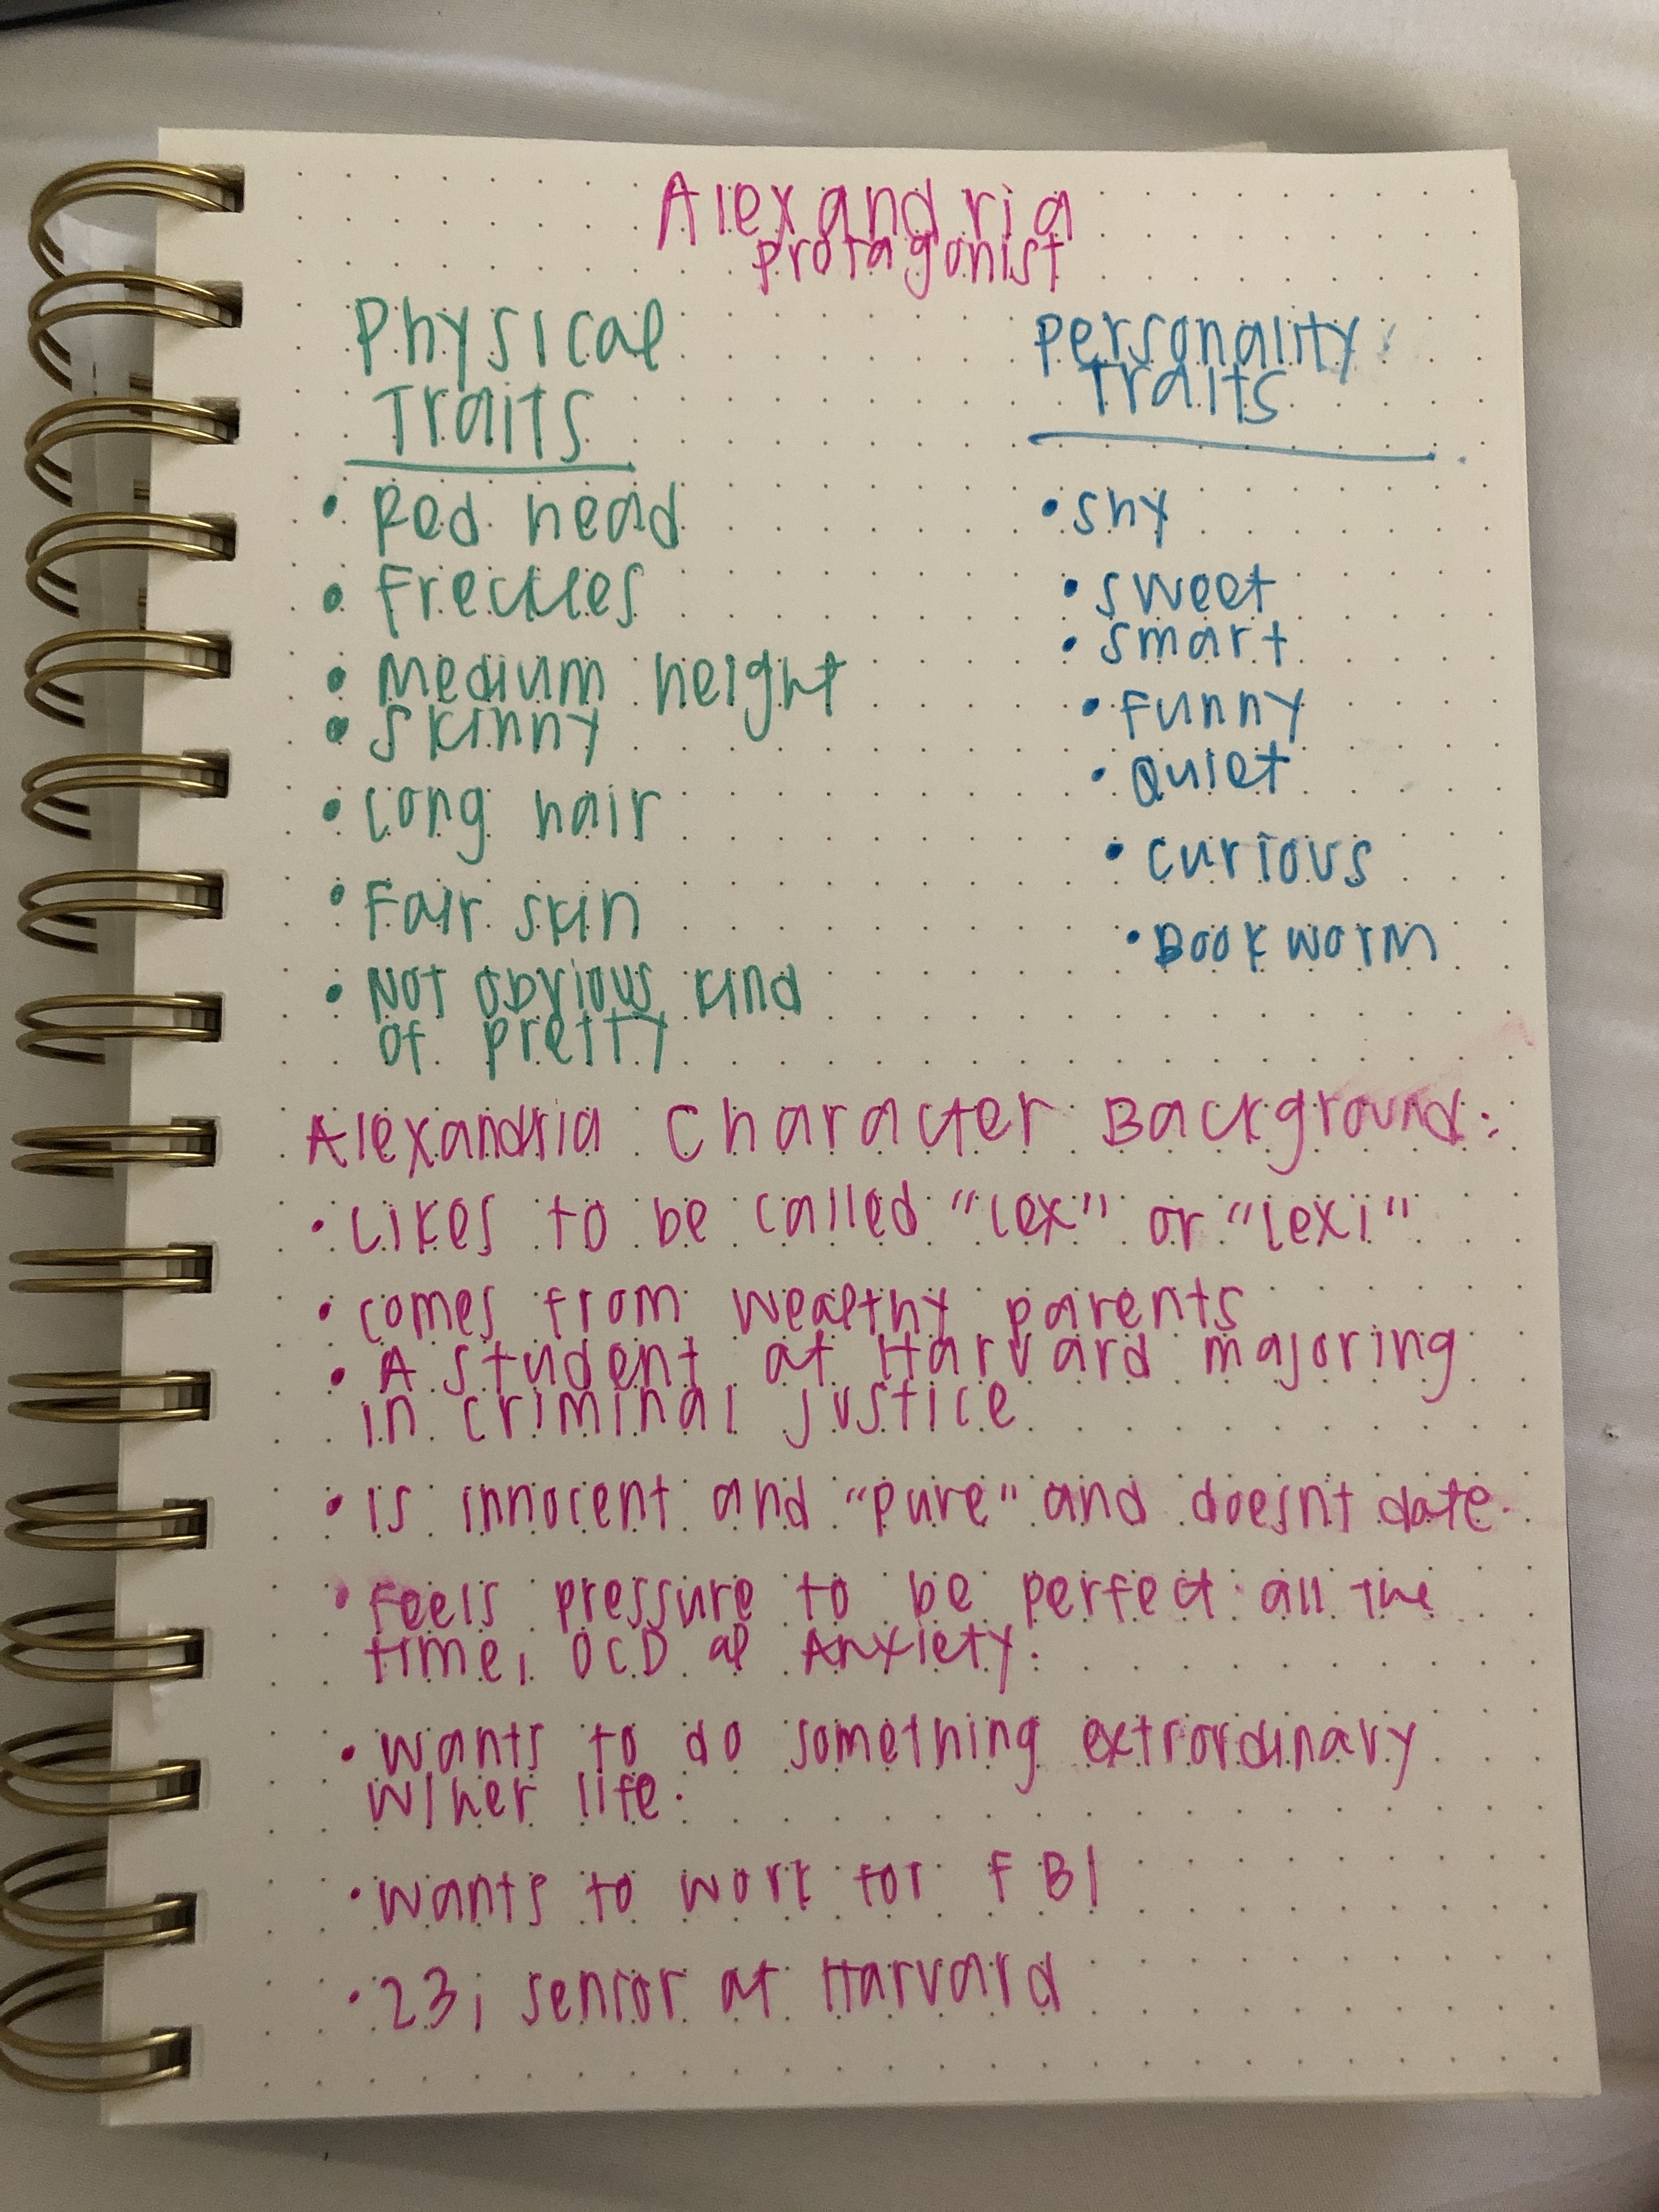 Alexandria
Protagonist
Physical
Traits
• Red head
• Freckles
• Medium height
• Skinny
• Long hair
• Fair skin
• Not obvious kind
of pretty
Personality
Traits
• Shy
• Sweet
• Smart
• Funny
• Quiet
• Curious
• Book worm
Alexandria Character Background:
• Likes to be called "Lex" or "Lexi"
• comes from wealthy parents
• A student at Harvard majoring
in criminal justice
• is innocent and "pure" and doesnt date.
• Feels pressure to be perfect all the
time, OCD Anxiety.
• wants to do something extrordinary
w/her life.
• wants to work for FBI
• 23, senior at Harvard